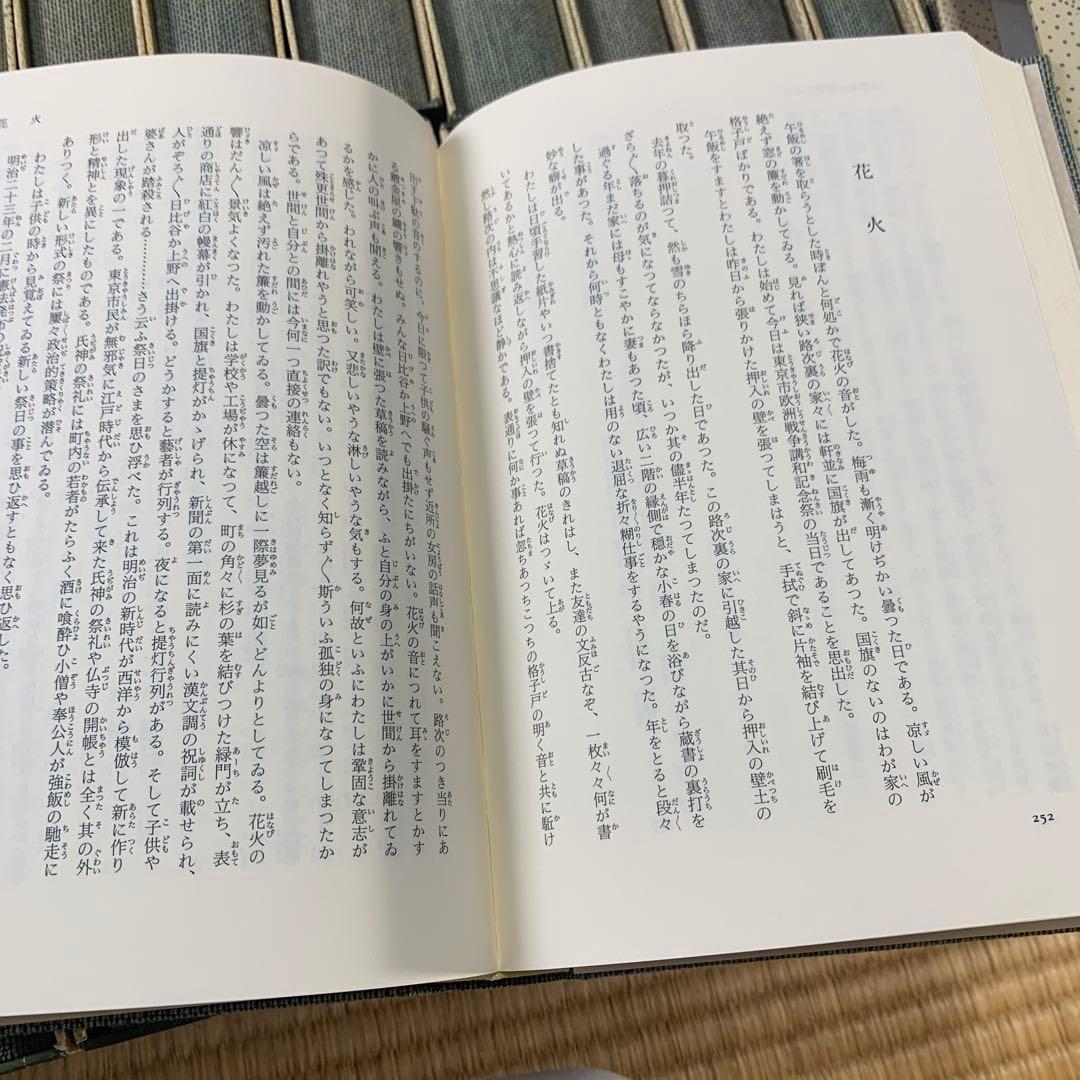 花火
午飯の箸を取らうとした時ぽんと何処かで花火の音がした。梅雨も漸く明けぢかい曇つた日である。涼しい風が
絶えず窓の簾を動かしてゐる。見れば狭い路次裏の家々には軒並に国旗が出してあつた。国旗のないのはわが家の
格子戸ばかりである。わたしは始めて今日は東京市欧洲戦争講和記念祭の当日であることを思出した。
午飯をすますとわたしは昨日から張りかけた押入の壁を張つてしまはうと、手拭で斜に片袖を結び上げて刷毛を
取つた。
去年の暮押詰つて、然も雪のちらほら降り出した日であつた。この路次裏の家に引越した其日から押入の壁土の
ざら〳〵落ちるのが気になつてならなかつたが、いつか其の儘半年たつてしまつたのだ。
過る年まだ家には母もすこやかに妻もあつた頃、広い二階の縁側で穏かな小春の日を浴びながら蔵書の裏打を
した事があつた。それから何時ともなくわたしは用のない退屈な折々糊仕事をするやうになつた。年をとると段々
妙な癖が出る。
わたしは日頃手習した紙片やいつ書捨てたとも知れぬ草稿のきれはし、また友達の文反古なぞ、一枚々々何が書
いてあるかと熱心に読み返しながら押入の壁を張つて行つた。花火はつゞいて上る。
然し路次の内は不思議なほど静かである。表通りに何か事あれば忽ちあつちこつちの格子戸の明く音と共に駈け
252
花火
出す下駄の音のするのに、今日に限つて子供の騒ぐ声もせず近所の女房の話声も聞こえない。路次のつき当りにあ
る鍍金屋の鑢の響きもせぬ。みんな日比谷か上野へでも出掛たにちがいない。花火の音につれて耳をすますとかす
かに人の叫ぶ声も聞える。わたしは壁に張つた草稿を読みながら、ふと自分の身の上がいかに世間から掛離れてゐ
るかを感じた。われながら可笑しい。又悲しいやうな淋しいやうな気もする。何故といふにわたしは鞏固な意志が
あつて殊更世間から掛離れやうと思つた訳でもない。いつとなく知らず〳〵斯ういふ孤独の身になつてしまつたか
らである。世間と自分との間には今何一つ直接の連絡もない。
涼しい風は絶えず汚れた簾を動かしてゐる。曇つた空は簾越しに一際夢見るが如くどんよりとしてゐる。花火の
響はだん〳〵景気よくなつた。わたしは学校や工場が休になつて、町の角々に杉の葉を結びつけた緑門が立ち、表
通りの商店に紅白の幔幕が引かれ、国旗と提灯がかゝげられ、新聞の第一面に読みにくい漢文調の祝詞が載せられ、
人がぞろ〳〵日比谷か上野へ出掛ける。どうかすると藝者が行列する。夜になると提灯行列がある。そして子供や
婆さんが踏殺される…………さう云ふ祭日のさまを思ひ浮べた。これは明治の新時代が西洋から模倣して新に作り
出した現象の一である。東京市民が無邪気に江戸時代から伝承して来た氏神の祭礼や仏寺の開帳とは全く其の外
形と精神とを異にしたものである。氏神の祭礼には町内の若者がたらふく酒に喰酔ひ小僧や奉公人が強飯の馳走に
ありつく。新しい形式の祭には屢々政治的策略が潜んでゐる。
わたしは子供の時から見覚えてゐる新しい祭日の事を思ひ返すともなく思ひ返した。
明治二十三年の二月に憲法発布の